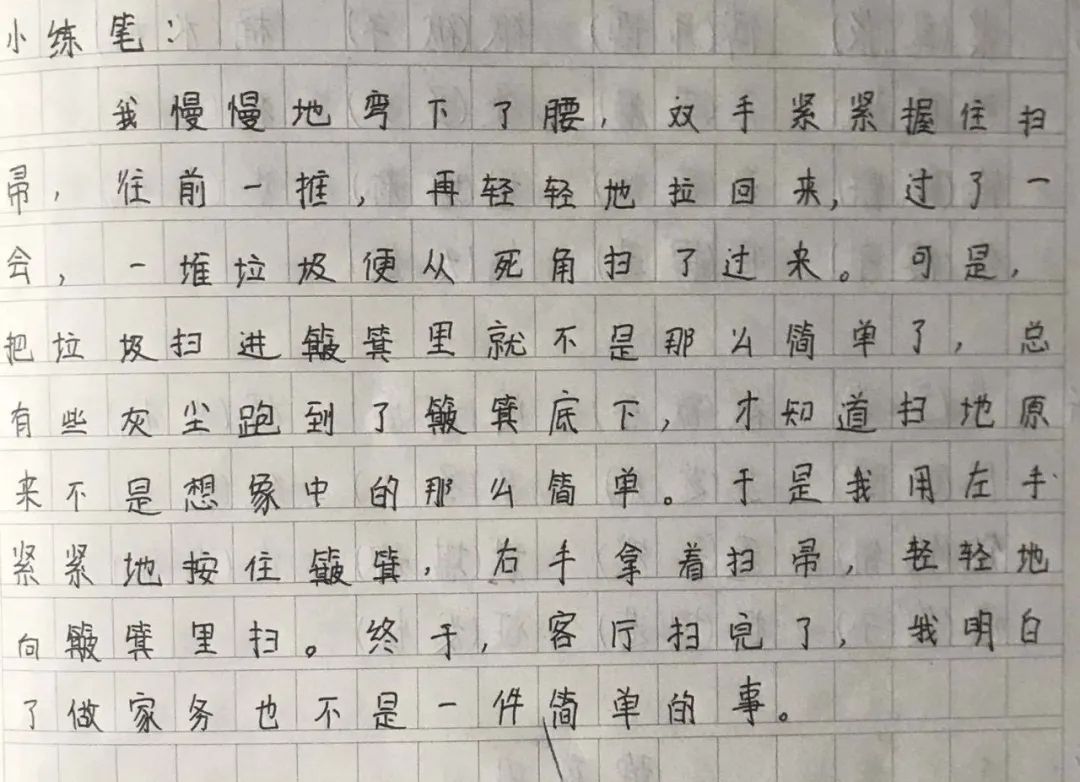 小练笔：
我慢慢地弯下了腰，双手紧紧握住扫
帚，往前一推，再轻轻地拉回来，过了一
会，一堆垃圾便从死角扫了过来。可是，
把垃圾扫进簸箕里就不是那么简单了，总
有些灰尘跑到了簸箕底下，才知道扫地原
来不是想象中的那么简单。于是我用左手
紧紧地按住簸箕，右手拿着扫帚，轻轻地
向簸箕里扫。终于，客厅扫完了，我明白
了做家务也不是一件简单的事。